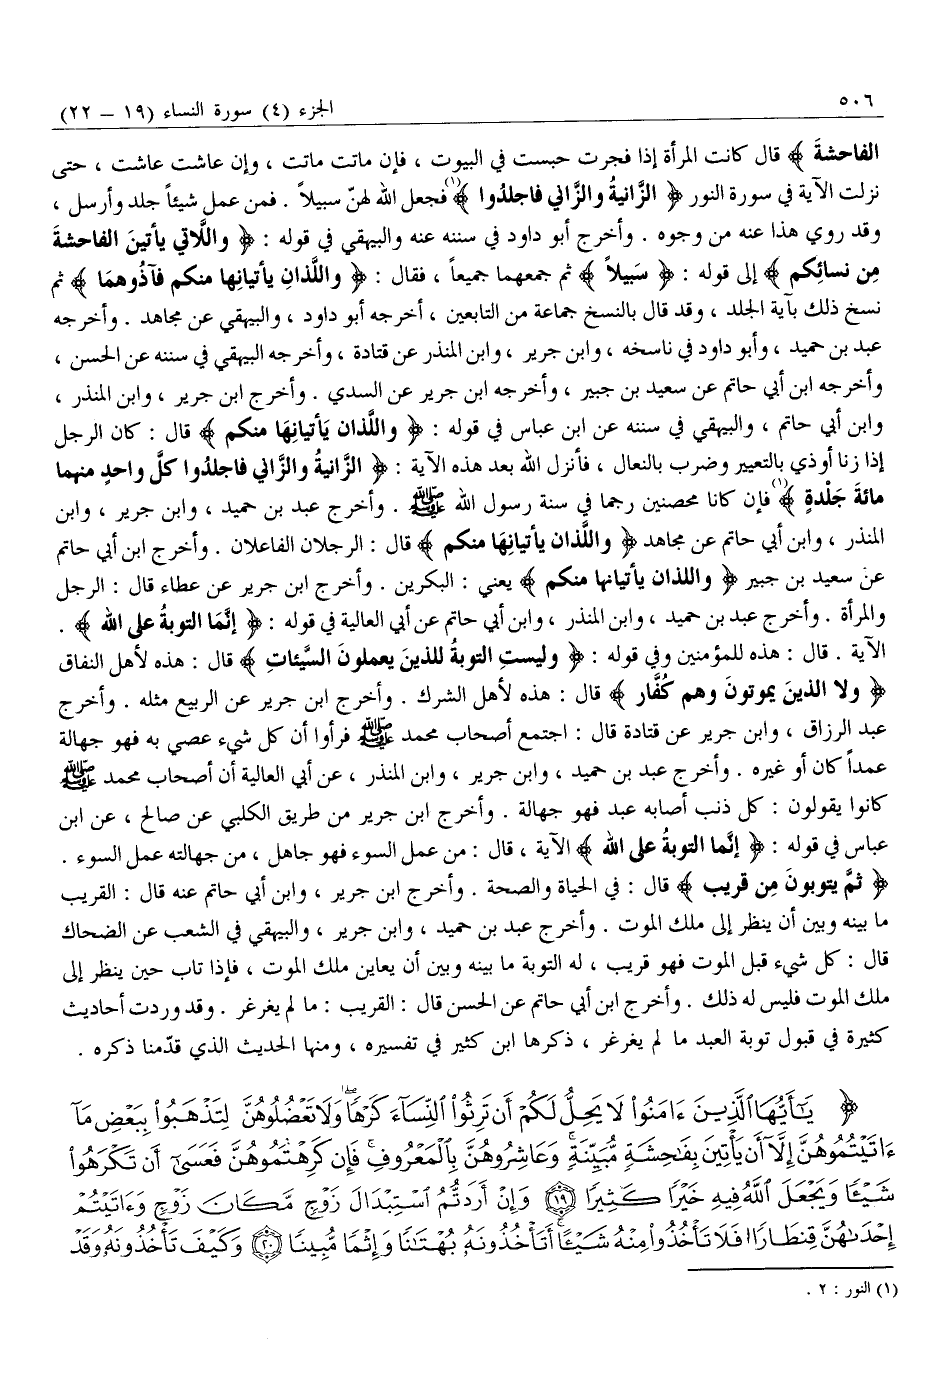 ٥٠٦
الجزء (٤) سورة النساء (١٩ – ٢٢)
الفاحشةَ ﴾ قال كانت المرأة إذا فجرت حبست في البيوت ، فإن ماتت ماتت ، وإن عاشت عاشت ، حتى
نزلت الآية في سورة النور ﴿ الزَّانيةُ والزَّاني فاجلدُوا ﴾(١) فجعل الله لهنّ سبيلاً . فمن عمل شيئاً جلد وأرسل ،
وقد روي هذا عنه من وجوه . وأخرج أبو داود في سننه عنه والبيهقي في قوله : ﴿ واللَّاتي يأتينَ الفاحشةَ
مِن نسائِكم ﴾ إلى قوله : ﴿ سَبيلاً ﴾ ثم جمعهما جميعاً ، فقال : ﴿ واللَّذانِ يأتيانِها منكم فآذُوهمَا ﴾ ثم
نسخ ذلك بآية الجلد ، وقد قال بالنسخ جماعة من التابعين ، أخرجه أبو داود ، والبيهقي عن مجاهد . وأخرجه
عبد بن حميد ، وأبو داود في ناسخه ، وابن جرير ، وابن المنذر عن قتادة ، وأخرجه البيهقي في سننه عن الحسن ،
وأخرجه ابن أبي حاتم عن سعيد بن جبير ، وأخرجه ابن جرير عن السدي . وأخرج ابن جرير ، وابن المنذر ،
وابن أبي حاتم ، والبيهقي في سننه عن ابن عباس في قوله : ﴿ واللَّذان يَأتيانِهَا منكم ﴾ قال : كان الرجل
إذا زنا أوذي بالتعيير وضرب بالنعال ، فأنزل الله بعد هذه الآية : ﴿ الزَّانيةُ والزَّاني فاجلدُوا كلَّ واحدٍ منهما
مائةَ جَلْدةٍ ﴾(١) فإن كانا محصنين رجما في سنة رسول الله ﷺ . وأخرج عبد بن حميد ، وابن جرير ، وابن
المنذر ، وابن أبي حاتم عن مجاهد ﴿ واللَّذان يأتيانِهَا منكم ﴾ قال : الرجلان الفاعلان . وأخرج ابن أبي حاتم
عن سعيد بن جبير ﴿ واللذان يأتيانها منكم ﴾ يعني : البكرين . وأخرج ابن جرير عن عطاء قال : الرجل
والمرأة . وأخرج عبد بن حميد ، وابن المنذر ، وابن أبي حاتم عن أبي العالية في قوله : ﴿ إنَّمَا التوبةُ على الله ﴾ .
الآية . قال : هذه للمؤمنين وفي قوله : ﴿ وليستِ التوبةُ للذينَ يعملونَ السَّيئاتِ ﴾ قال : هذه لأهل النفاق
﴿ ولا الذينَ يموتونَ وهم كُفَّار ﴾ قال : هذه لأهل الشرك . وأخرج ابن جرير عن الربيع مثله . وأخرج
عبد الرزاق ، وابن جرير عن قتادة قال : اجتمع أصحاب محمد ﷺ فرأوا أن كل شيء عصي به فهو جهالة
عمداً كان أو غيره . وأخرج عبد بن حميد ، وابن جرير ، وابن المنذر ، عن أبي العالية أن أصحاب محمد ﷺ
كانوا يقولون : كل ذنب أصابه عبد فهو جهالة . وأخرج ابن جرير من طريق الكلبي عن صالح ، عن ابن
عباس في قوله : ﴿ إنَّما التوبةُ على الله ﴾ الآية ، قال : من عمل السوء فهو جاهل ، من جهالته عمل السوء .
﴿ ثمَّ يتوبونَ مِن قريب ﴾ قال : في الحياة والصحة . وأخرج ابن جرير ، وابن أبي حاتم عنه قال : القريب
ما بينه وبين أن ينظر إلى ملك الموت . وأخرج عبد بن حميد ، وابن جرير ، والبيهقي في الشعب عن الضحاك
قال : كل شيء قبل الموت فهو قريب ، له التوبة ما بينه وبين أن يعاين ملك الموت ، فإذا تاب حين ينظر إلى
ملك الموت فليس له ذلك . وأخرج ابن أبي حاتم عن الحسن قال : القريب : ما لم يغرغر . وقد وردت أحاديث
كثيرة في قبول توبة العبد ما لم يغرغر ، ذكرها ابن كثير في تفسيره ، ومنها الحديث الذي قدّمنا ذكره .
﴿ يَٰٓأَيُّهَا ٱلَّذِينَ ءَامَنُوا۟ لَا يَحِلُّ لَكُمْ أَن تَرِثُوا۟ ٱلنِّسَآءَ كَرْهًا ۖ وَلَا تَعْضُلُوهُنَّ لِتَذْهَبُوا۟ بِبَعْضِ مَآ
ءَاتَيْتُمُوهُنَّ إِلَّآ أَن يَأْتِينَ بِفَٰحِشَةٍ مُّبَيِّنَةٍ ۚ وَعَاشِرُوهُنَّ بِٱلْمَعْرُوفِ ۚ فَإِن كَرِهْتُمُوهُنَّ فَعَسَىٰٓ أَن تَكْرَهُوا۟
شَيْـًٔا وَيَجْعَلَ ٱللَّهُ فِيهِ خَيْرًا كَثِيرًا ١٩ وَإِنْ أَرَدتُّمُ ٱسْتِبْدَالَ زَوْجٍ مَّكَانَ زَوْجٍ وَءَاتَيْتُمْ
إِحْدَىٰهُنَّ قِنطَارًا فَلَا تَأْخُذُوا۟ مِنْهُ شَيْـًٔا ۚ أَتَأْخُذُونَهُۥ بُهْتَٰنًا وَإِثْمًا مُّبِينًا ٢٠ وَكَيْفَ تَأْخُذُونَهُۥ وَقَدْ
(١) النور : ٢ .